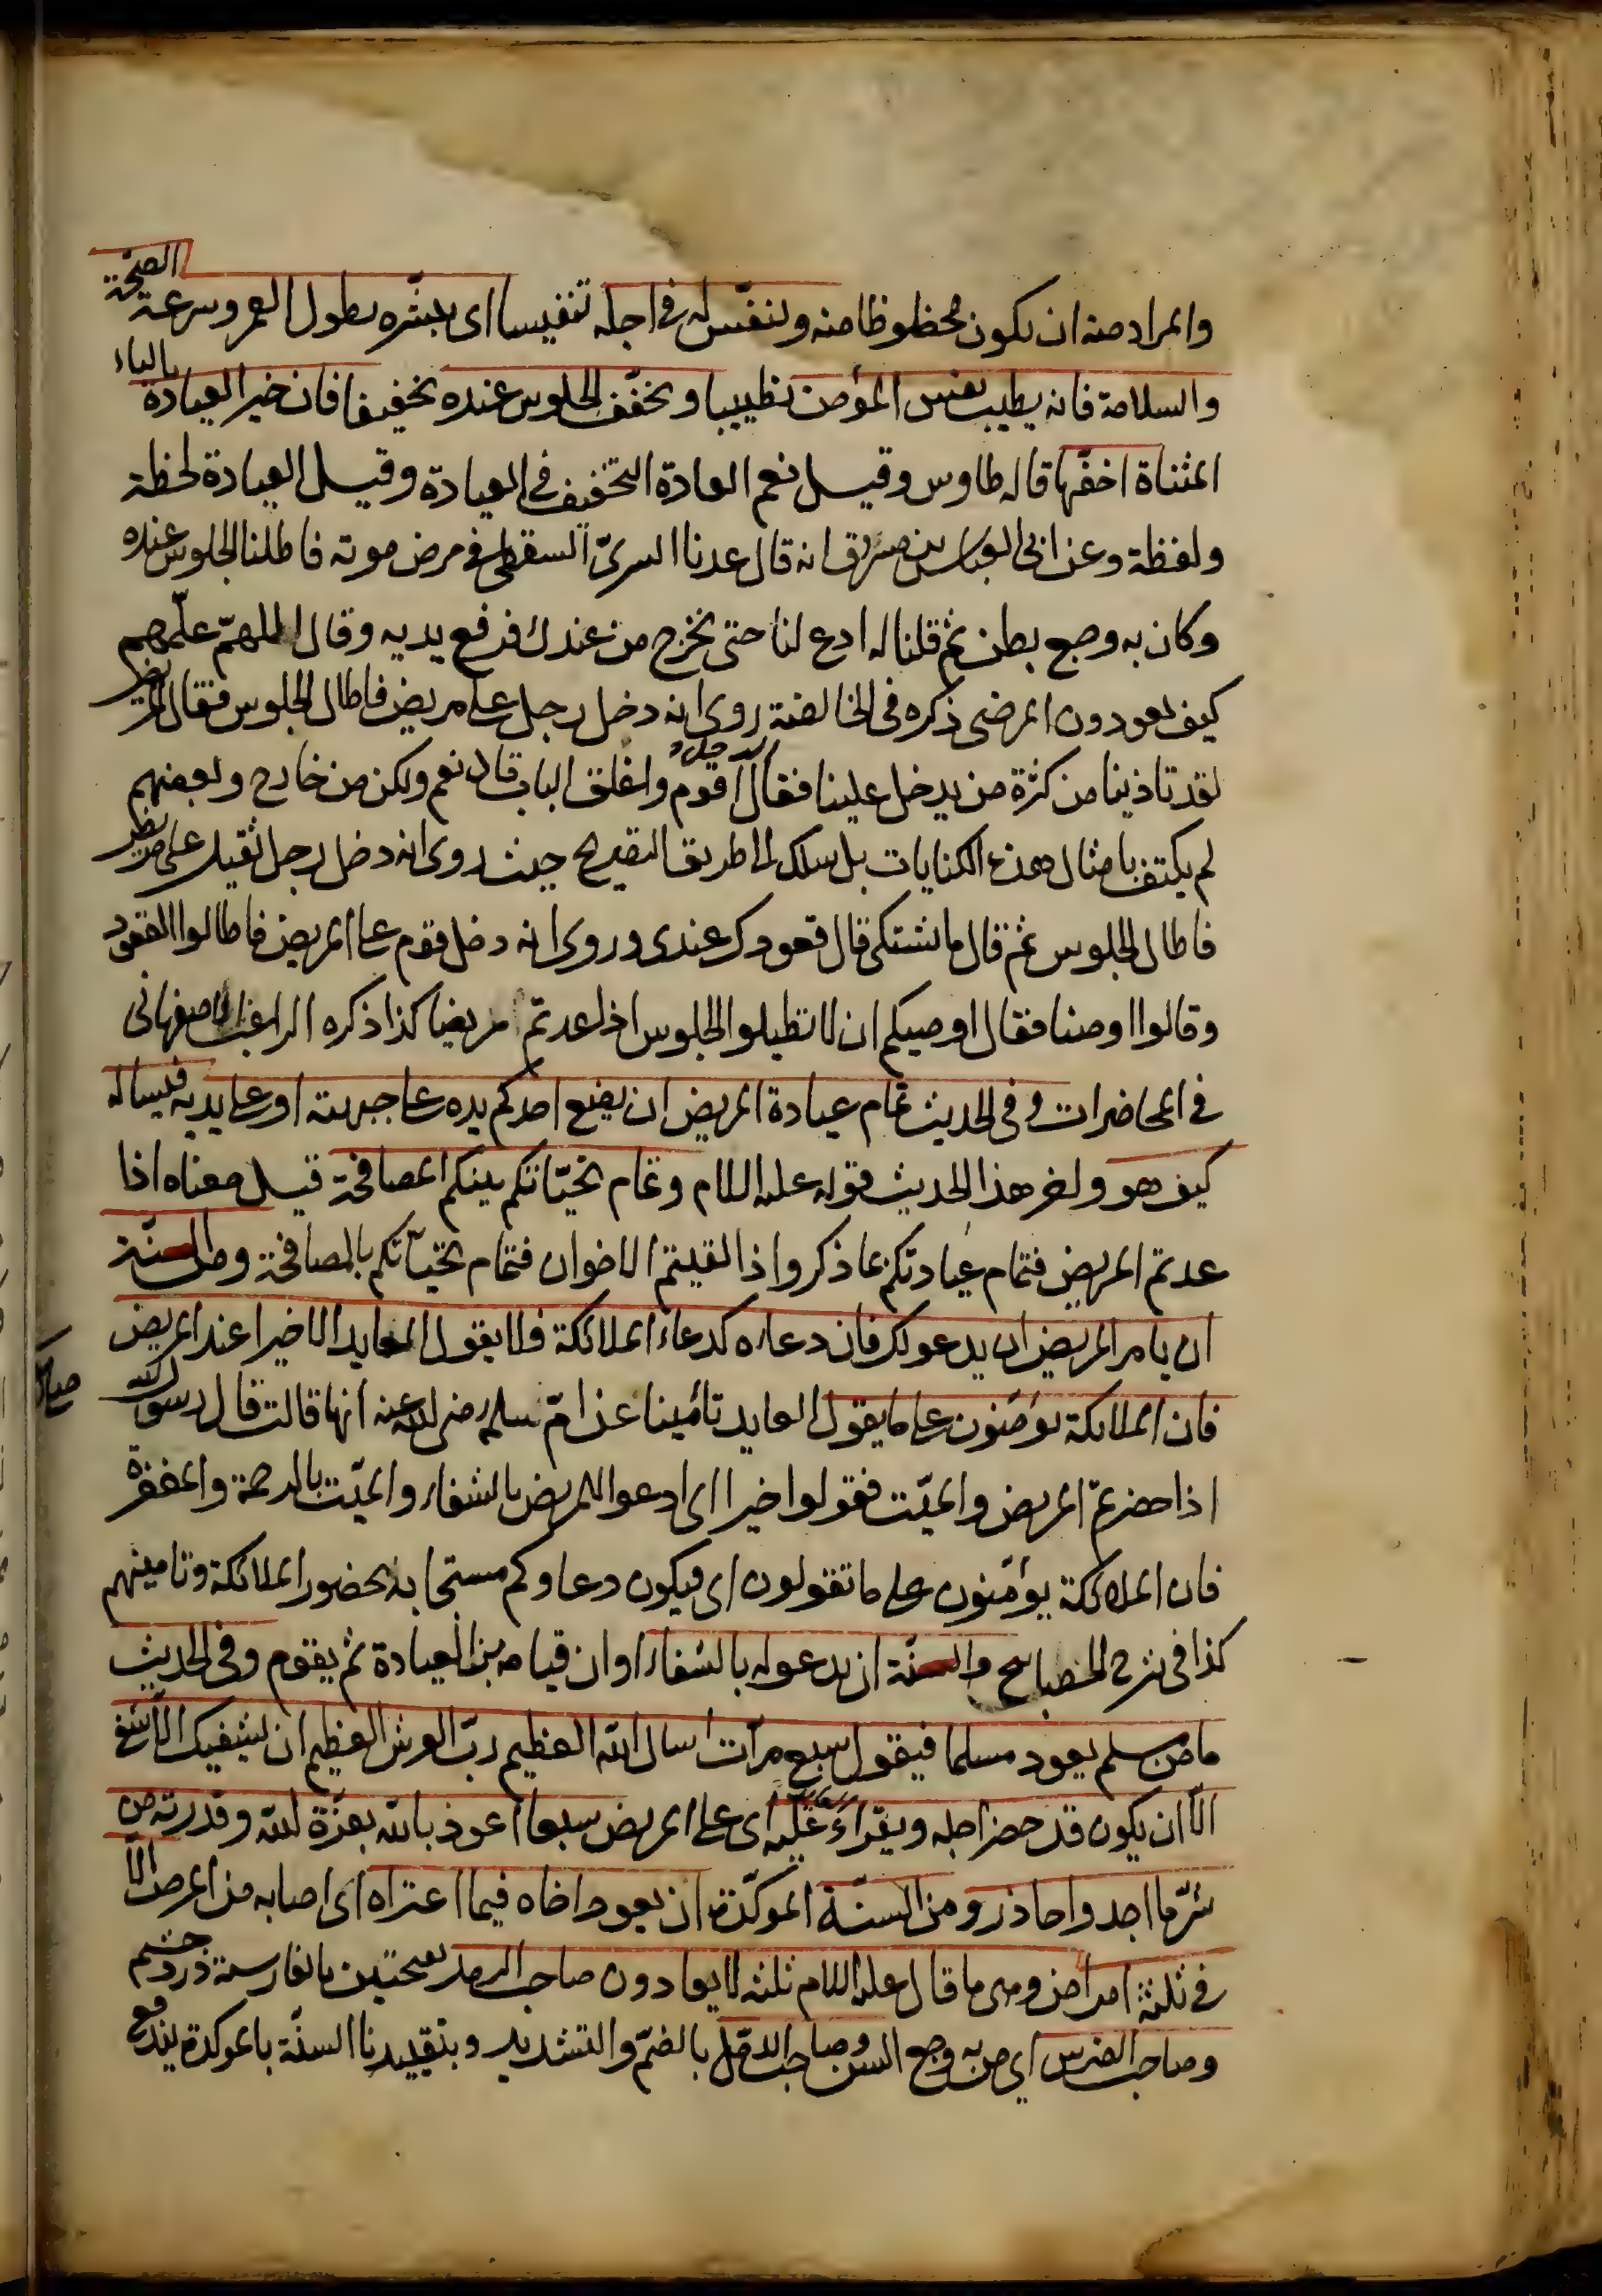 والمراد منه ان يكون محظوظا منه وينفس له في اجله تنفيسا اى يبشّره بطول العمر وسرعة الصحّة
والسلامة فانه يطيب نفس المؤمن تطييبا ويخفّف الجلوس عنده تخفيفا فان خير العيادة بالياء
المثناة اخفّها قاله طاوس وقيل نعم العادة التخفيف في العيادة وقيل العيادة لحظة
ولفظة وعن ابى العباس بن مسروق انه قال عدنا السرىّ السقطى في مرض موته فاطلنا الجلوس عنده
وكان به وجع بطن ثم قلنا له ادع لنا حتى نخرج من عندك فرفع يديه وقال اللهمّ علّمهم
كيف يعودون المرضى ذكره فى الخالصة روى انه دخل رجل على مريض فاطال الجلوس فقال المريض
لقد تاذينا من كثرة من يدخل علينا فقال الرجل أقوم واغلق الباب قال نعم ولكن من خارج وبعضهم
لم يكتف بامثال هذه الكنايات بل سلك الى طريق التصريح حيث روى انه دخل رجل ثقيل على مريض
فاطال الجلوس ثم قال ما تشتكى قال قعودك عندى وروى انه دخل قوم على المريض فاطالوا القعود
وقالوا اوصنا فقال اوصيكم ان لا تطيلوا الجلوس اذا عدتم مريضا كذا ذكره الراغب الاصفهانى
في المحاضرات وفى الحديث تمام عيادة المريض ان يضع احدكم يده على جبهته او على يديه فيساله
كيف هو واخر هذا الحديث قوله عليه السلام وتمام تحيّاتكم بينكم المصافحة قيل معناه اذا
عدتم المريض فتمام عيادتكم بما ذكر واذا لقيتم الاخوان فتمام تحيّاتكم بالمصافحة ومن السنّة
ان يامر المريض ان يدعو لك فان دعاءه كدعاء الملائكة فلا يقول العايد الا خيرا عند المريض
فان الملائكة يؤمّنون على ما يقول العايد تأمينا عن امّ سلمه رضى الله عنه انها قالت قال رسول الله
اذا حضرتم المريض والميّت فقولوا خيرا اى ادعوا للمريض بالشفاء والميّت بالرحمة والمغفرة
فان الملائكة يؤمّنون على ما تقولون اى فيكون دعاوكم مستجابة بحضور الملائكة وتامينهم
كذا فى شرح المصابيح والسنّة ان يدعو له بالشفاء اوان قيامه من العيادة ثم يقوم وفى الحديث
ما من مسلم يعود مسلما فيقول سبع مرّات اسال الله العظيم ربّ العرش العظيم ان يشفيك الا شفى
الّا ان يكون قد حضر اجله ويقراء عليه اى على المريض سبعا اعوذ بالله بعزّة الله وقدرته من
شرّ ما اجد واحاذر ومن السنّة الموكّدة ان يعود اخاه فيما اعتراه اى اصابه من المرض الّا
في ثلثة امراض وهى ما قال عليه السلام ثلثه لا يعادون صاحب الرمد بفتحتين بالفارسية درد چشم
وصاحب الضرس اى من به وجع السن وصاحب الدمّل بالضمّ والتشديد وبتقييدنا السنّة بالموكدة يندفع